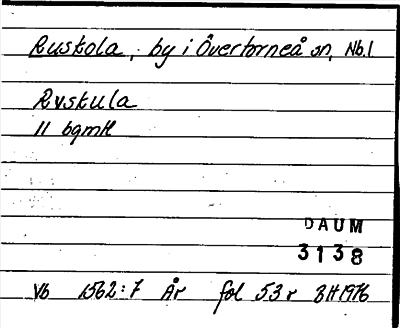 Ruskola, by i Övertorneå sn, Nb.l
Ryskula
11 bgmtl
DAUM
3138
Vb 1562:7 År fol 53 r BH 1976